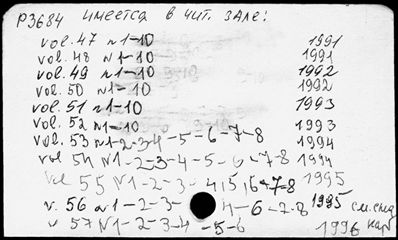 Р3684 имеется в чит. зале:
vol. 47 №1-10 1991
vol. 48 №1-10 1991
vol. 49 №1-10 1992
vol. 50 №1-10 1992
vol. 51 №1-10 1993
vol. 52 №1-10 1993
vol. 53 №1-2-3-4-5-6-7-8 1994
vol 54 №1-2-3-4-5-6-7-8 1994
vol 55 №1-2-3-4,5,6-7-8 1995
v. 56 №1-2-3 4-6-7-8 1995 см. след
v 57 №1-2-3-4-5-6 1996 кар